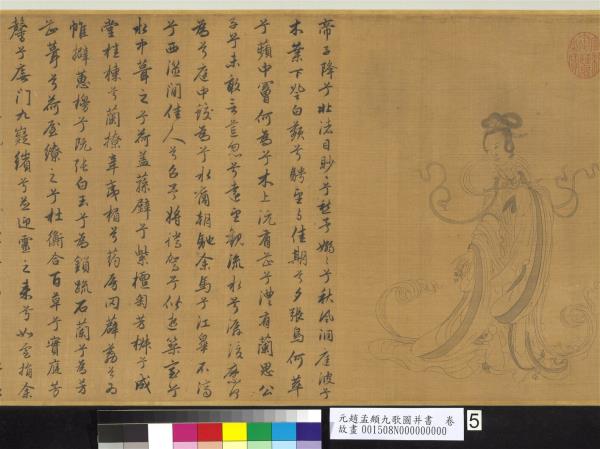 帝子降兮北渚目眇眇兮愁予嫋嫋兮秋風洞庭波兮
木葉下登白薠兮騁望與佳期兮夕張鳥何萃
兮蘋中罾何為兮木上沅有芷兮澧有蘭思公
子兮未敢言荒忽兮遠望觀流水兮潺湲麋何
為兮庭中蛟為兮水裔朝馳余馬兮江皋夕濟
兮西澨聞佳人兮召予將騰駕兮偕逝築室兮
水中葺之兮荷蓋蓀壁兮紫壇匊芳椒兮成
堂桂棟兮蘭橑辛夷楣兮葯房罔薜荔兮為
帷擗蕙櫋兮既張白玉兮為鎮疏石蘭兮為芳
芷葺兮荷屋繚之兮杜衡合百草兮實庭芳
馨兮廡門九疑繽兮並迎靈之來兮如雲捐余
元趙孟頫九歌圖并書 卷
故畫001508N000000000
5